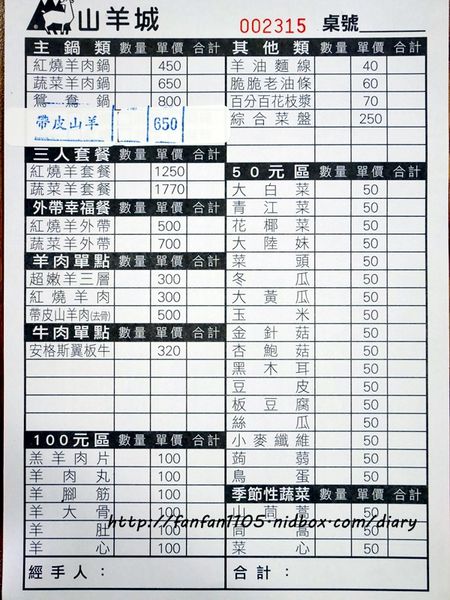 山羊城 002315 桌號
主鍋類 數量 單價 合計
紅燒羊肉鍋 450
蔬菜羊肉鍋 650
鴛鴦鍋 800
帶皮山羊 650
三人套餐 數量 單價 合計
紅燒羊套餐 1250
蔬菜羊套餐 1770
外帶幸福餐 數量 單價 合計
紅燒羊外帶 500
蔬菜羊外帶 700
羊肉單點 數量 單價 合計
超嫩羊三層 300
紅燒羊肉 300
帶皮山羊肉(去骨) 500
牛肉單點 數量 單價 合計
安格斯翼板牛 320
100元區 數量 單價 合計
羔羊肉片 100
羊肉丸 100
羊腳筋 100
羊大骨 100
羊肚 100
羊心 100
經手人：
其他類 數量 單價 合計
羊油麵線 40
脆脆老油條 60
百分百花枝漿 70
綜合菜盤 250
50元區 數量 單價 合計
大白菜 50
青江菜 50
花椰菜 50
大陸妹 50
菜頭 50
冬瓜 50
大黃瓜 50
玉米 50
金針菇 50
杏鮑菇 50
黑木耳 50
豆皮 50
板豆腐 50
絲瓜 50
小麥纖維 50
蒟蒻 50
鳥蛋 50
季節性蔬菜 數量 單價 合計
山茼蒿 50
茼蒿 50
菜心 50
合計：
http://fanfan1105.nidbox.com/diary